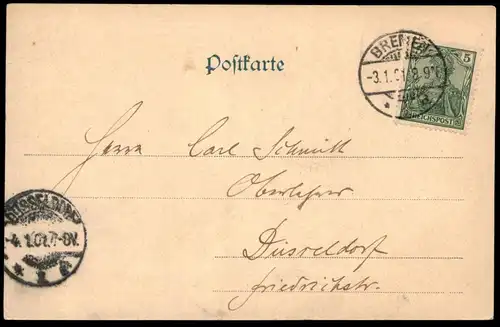 Postkarte
BREMEN
-3.1.01. 8-9
5
REICHSPOST
Herrn Carl Schmitt
Oberlehrer
Düsseldorf
Friedrichstr.
DÜSSELDORF
4.1.01.7-8V.